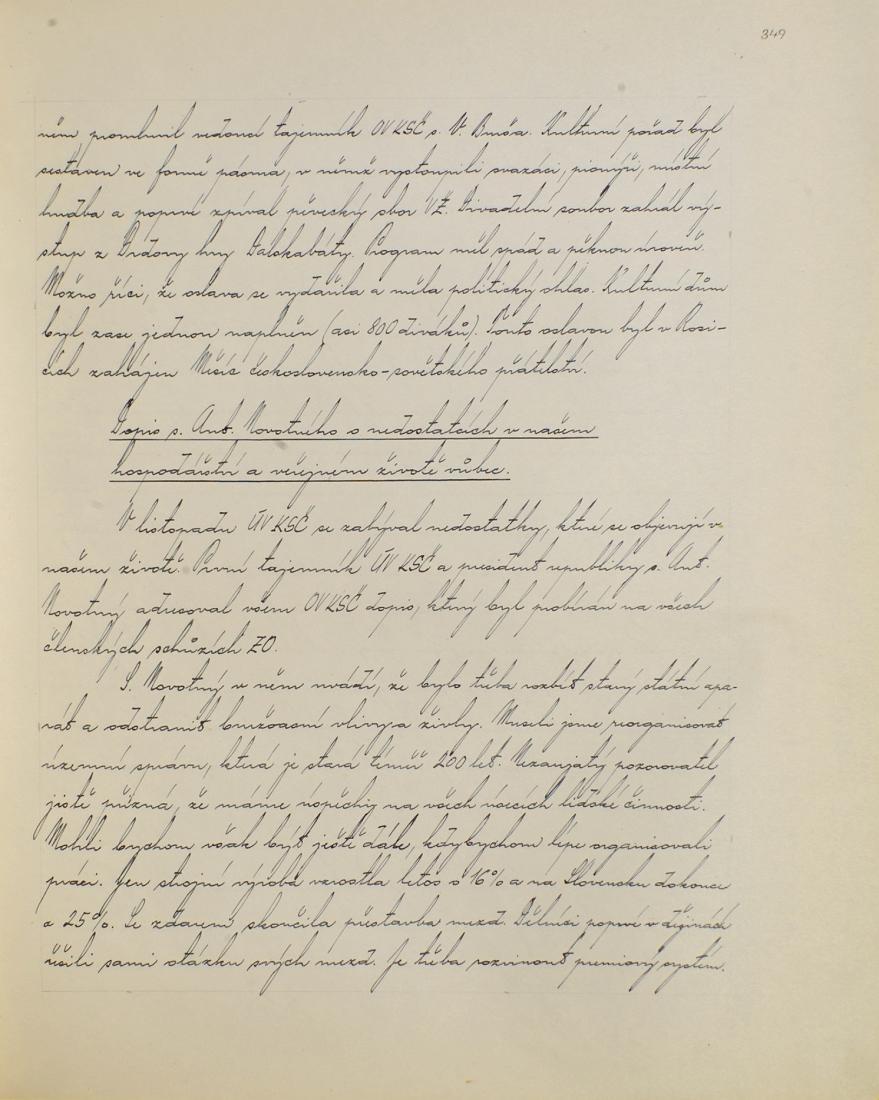 349
něm promluvil vedoucí tajemník OV KSČ s. V. Bursa. Kulturní pořad byl
sestaven ve formě pásma, v němž vystoupili svazáci, pionýři, místní
hudba a poprvé zpíval pěvecký sbor VŽ. Divadelní soubor zahrál vý-
stup z Drdovy hry Dalskabáty. Program měl spád a pěknou úroveň.
Možno říci, že oslava se vydařila a měla politický ohlas. Kulturní dům
byl zase jednou naplněn (asi 800 diváků). Touto oslavou byl v Rosi-
cích zahájen Měsíc československo-sovětského přátelství.
Dopis s. Ant. Novotného o nedostatcích v našem
hospodářství a veřejném životě vůbec.
V listopadu ÚV KSČ se zabýval nedostatky, které se objevují v
našem životě. První tajemník ÚV KSČ a president republiky s. Ant.
Novotný adresoval všem OV KSČ dopis, který byl probírán na všech
členských schůzích ZO.
S. Novotný v něm uvádí, že bylo třeba rozbít starý státní apa-
rát a odstranit buržoasní vlivy a živly. Museli jsme reorganisovat
územní správu, která je stará téměř 200 let. Nezaujatý pozorovatel
jistě přizná, že máme úspěchy na všech úsecích lidské činnosti.
Mohli bychom však být ještě dále, kdybychom lépe organisovali
práci. Jen strojní výroba vzrostla letos o 16% a na Slovensku dokonce
o 25%. Se zdarem skončila přestavba mezd. Dělníci poprvé v dějinách
řešili sami otázku svých mezd. Je třeba rozvinout premiový systém.